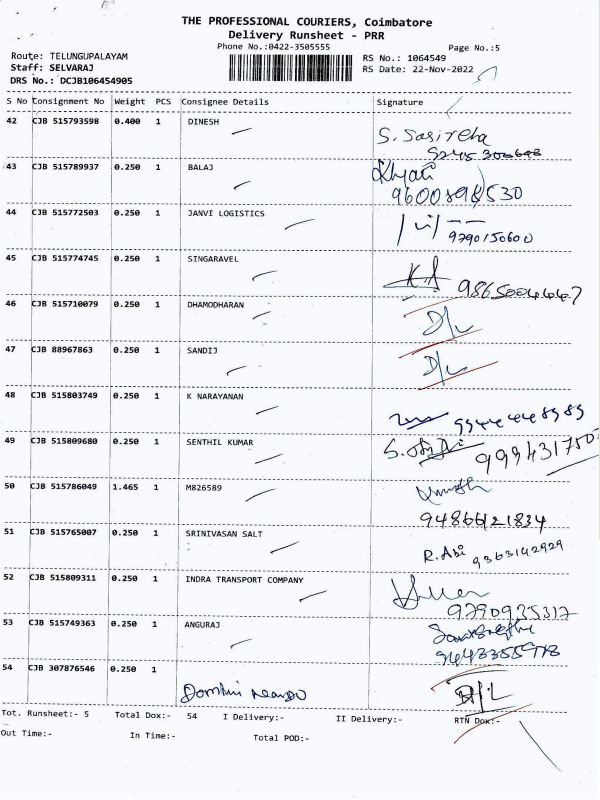 THE PROFESSIONAL COURIERS, Coimbatore
Delivery Runsheet - PRR
Phone No.:0422-3505555 Page No.:5
Route: TELUNGUPALAYAM RS No.: 1064549
Staff: SELVARAJ RS Date: 22-Nov-2022
DRS No.: DCJB106454905
S No Consignment No Weight PCS Consignee Details Signature
42 CJB 515793598 0.400 1 DINESH
S. Sasireha
43 CJB 515789937 0.250 1 BALAJ
9600898530
44 CJB 515772503 0.250 1 JANVI LOGISTICS
9790150600
45 CJB 515774745 0.250 1 SINGARAVEL
46 CJB 515710079 0.250 1 DHAMODHARAN
D/L
47 CJB 88967863 0.250 1 SANDIJ
D/L
48 CJB 515803749 0.250 1 K NARAYANAN
9944448989
49 CJB 515809680 0.250 1 SENTHIL KUMAR
50 CJB 515786049 1.465 1 M826589
51 CJB 515765007 0.250 1 SRINIVASAN SALT
R. Abi 9363142929
52 CJB 515809311 0.250 1 INDRA TRANSPORT COMPANY
9790935317
53 CJB 515749363 0.250 1 ANGURAJ
54 CJB 307876546 0.250 1
D/L
Tot. Runsheet:- 5 Total Dox:- 54 I Delivery:- II Delivery:- RTN Dox:-
Out Time:- In Time:- Total POD:-